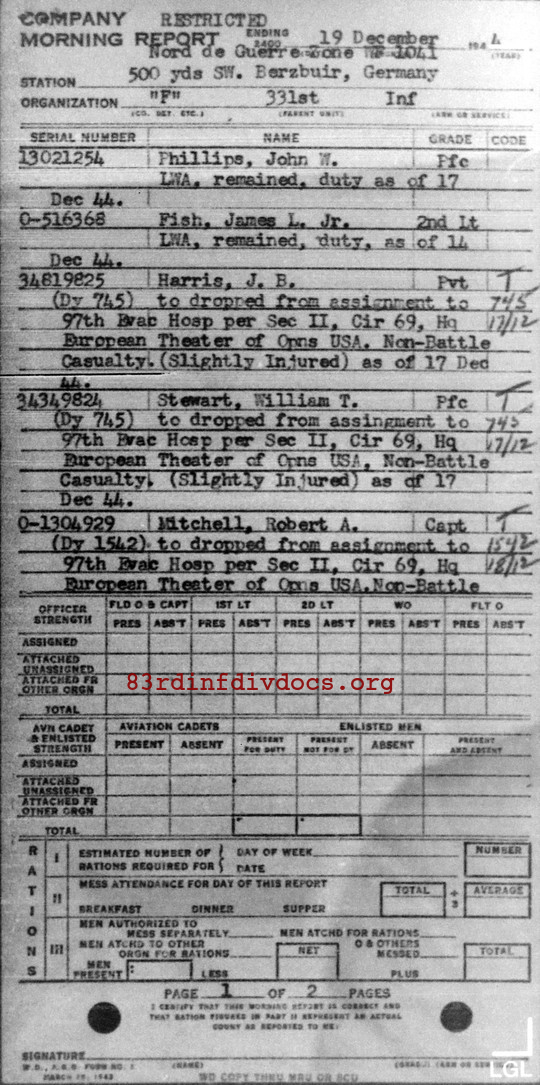 COMPANY RESTRICTED
MORNING REPORT ENDING 2400 19 December 194 4
Nord de Guerre Zone WF 1041 (YEAR)
STATION 500 yds SW. Berzbuir, Germany
ORGANIZATION "F" 331st Inf
(CO. DET. ETC.) (PARENT UNIT) (ARM OR SERVICE)
SERIAL NUMBER NAME GRADE CODE
13021254 Phillips, John W. Pfc
LWA, remained, duty as of 17
Dec 44.
O-516368 Fish, James L. Jr. 2nd Lt
LWA, remained, duty, as of 14
Dec 44.
34819825 Harris, J. B. Pvt T
(Dy 745) to dropped from assignment to 745
97th Evac Hosp per Sec II, Cir 69, Hq 17/12
European Theater of Opns USA. Non-Battle
Casualty. (Slightly Injured) as of 17 Dec
44.
34349824 Stewart, William T. Pfc T
(Dy 745) to dropped from assingment to 745
97th Evac Hosp per Sec II, Cir 69, Hq 17/12
European Theater of Opns USA, Non-Battle
Casualty. (Slightly Injured) as of 17
Dec 44.
O-1304929 Mitchell, Robert A. Capt T
(Dy 1542) to dropped from assignment to 1542
97th Evac Hosp per Sec II, Cir 69, Hq 18/12
European Theater of Opns USA. Non-Battle
OFFICER STRENGTH FLD O & CAPT 1ST LT 2D LT WO FLT O
PRES ABS'T PRES ABS'T PRES ABS'T PRES ABS'T PRES ABS'T
ASSIGNED
ATTACHED UNASSIGNED
ATTACHED FR OTHER ORGN
83rdinfdivdocs.org
TOTAL
AVN CADET & ENLISTED STRENGTH AVIATION CADETS ENLISTED MEN
PRESENT ABSENT PRESENT FOR DUTY PRESENT NOT FOR DY ABSENT PRESENT AND ABSENT
ASSIGNED
ATTACHED UNASSIGNED
ATTACHED FR OTHER ORGN
TOTAL
RATIONS
I ESTIMATED NUMBER OF RATIONS REQUIRED FOR { DAY OF WEEK DATE NUMBER
II MESS ATTENDANCE FOR DAY OF THIS REPORT TOTAL ÷ 3 AVERAGE
BREAKFAST DINNER SUPPER
III MEN AUTHORIZED TO MESS SEPARATELY MEN ATCHD FOR RATIONS
MEN ATCHD TO OTHER ORGN FOR RATIONS NET O & OTHERS MESSED TOTAL
MEN PRESENT LESS PLUS
PAGE 1 OF 2 PAGES
I CERTIFY THAT THIS MORNING REPORT IS CORRECT AND
THAT RATION FIGURES IN PART II REPRESENT AN ACTUAL
COUNT AS REPORTED TO ME:
SIGNATURE
W.D., A.G.O. FORM NO. 1 (NAME)
MARCH 15, 1943 WD COPY THRU MRU OR SCU
LGL